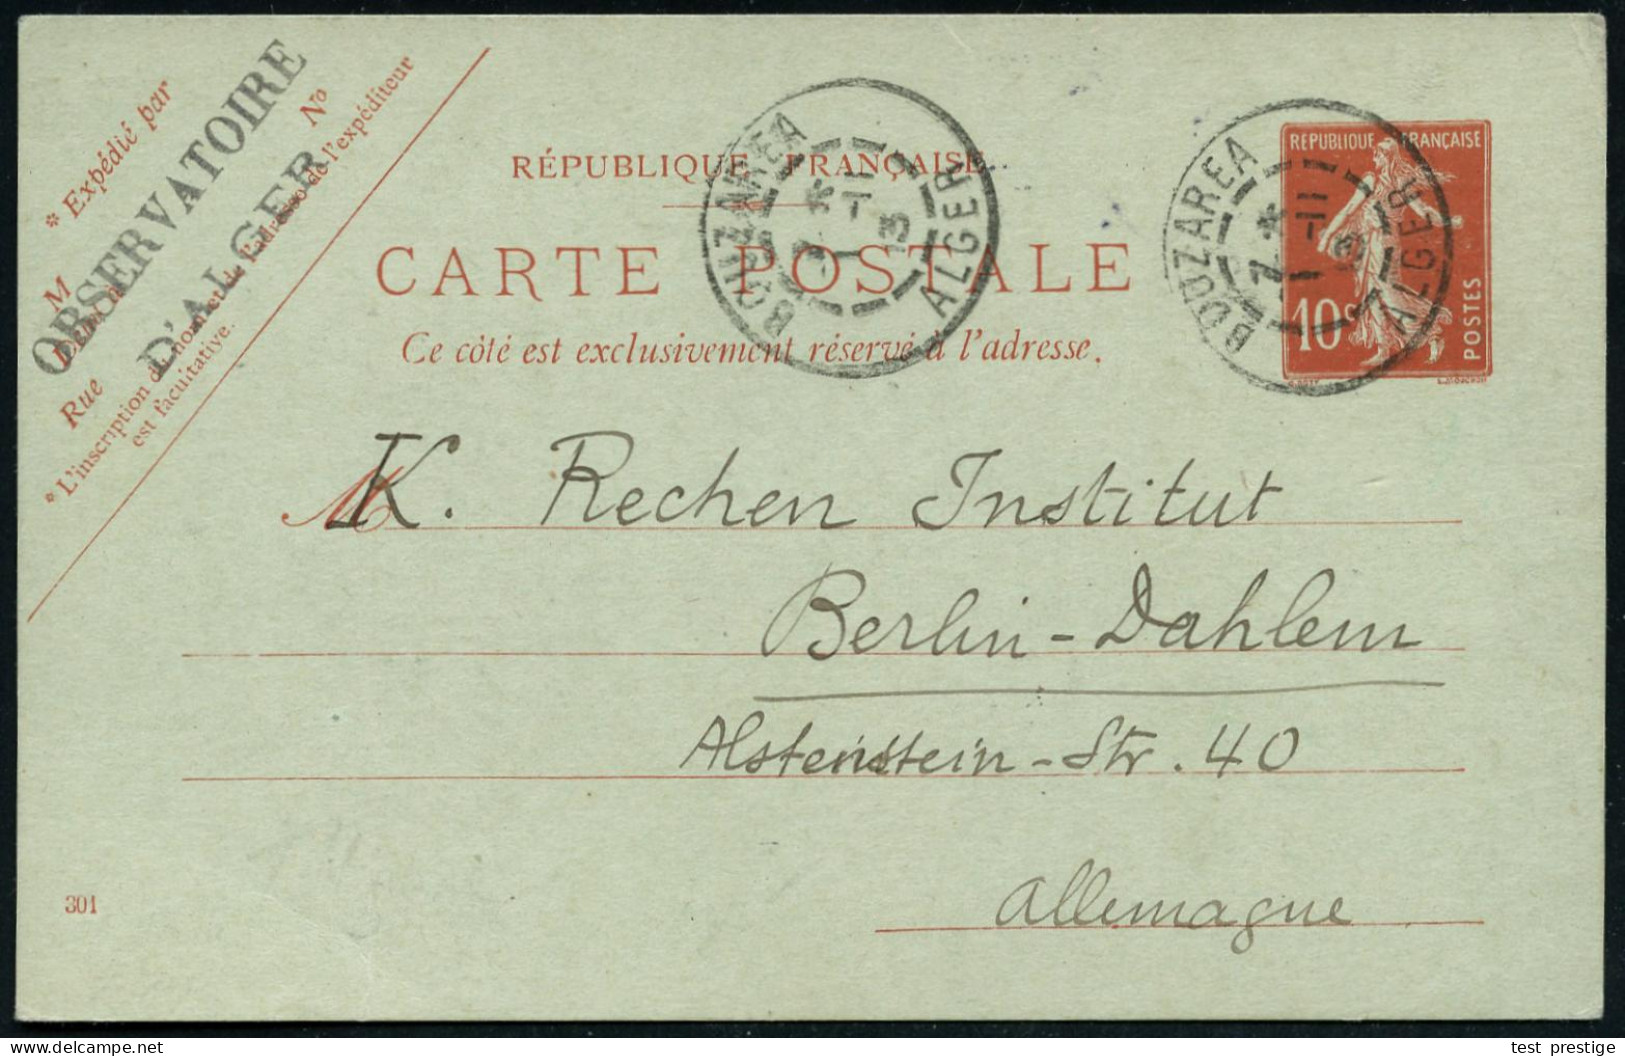 * Expédié par
M
Rue
No
* L'inscription du nom et de l'adresse de l'expéditeur
est facultative.
OBSERVATOIRE
D'ALGER
RÉPUBLIQUE FRANÇAISE
CARTE POSTALE
Ce côté est exclusivement réservé à l'adresse.
BOUZAREA
* 
-11
13
ALGER
BOUZAREA
7 *
1 -11
ALGER
RÉPUBLIQUE FRANÇAISE
10 c
POSTES
M
K. Rechen Institut
Berlin-Dahlem
Alstenstein-Str. 40
Allemagne
301
www.delcampe.net
test_prestige